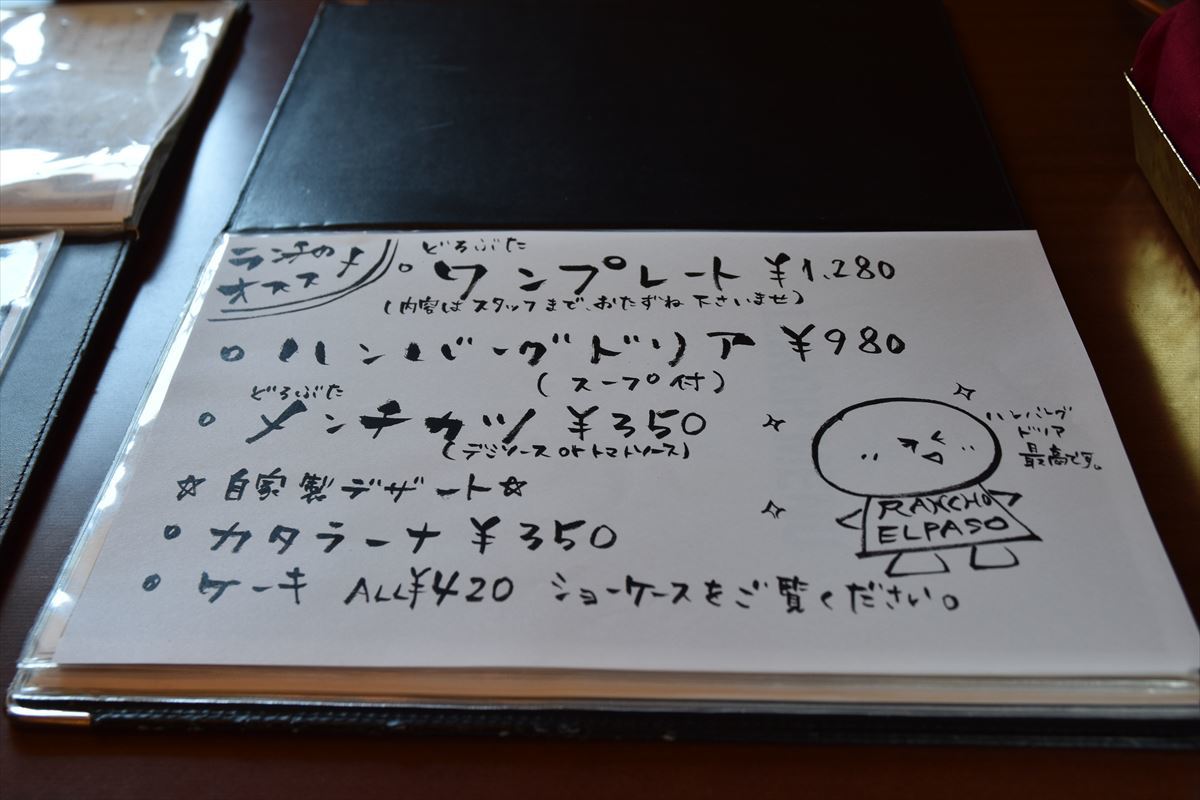 ランチの
オススメ
どろぶた
○ ワンプレート ¥1,280
(内容はスタッフまで、おたずね下さいませ)
○ ハンバーグドリア ¥980
(スープ付)
どろぶた
○ メンチカツ ¥350
(デミソース or トマトソース)
☆自家製デザート☆
○ カタラーナ ¥350
○ ケーキ ALL¥420 ショーケースをご覧ください。
ハンバーグ
ドリア
最高です。
RANCHO
ELPASO